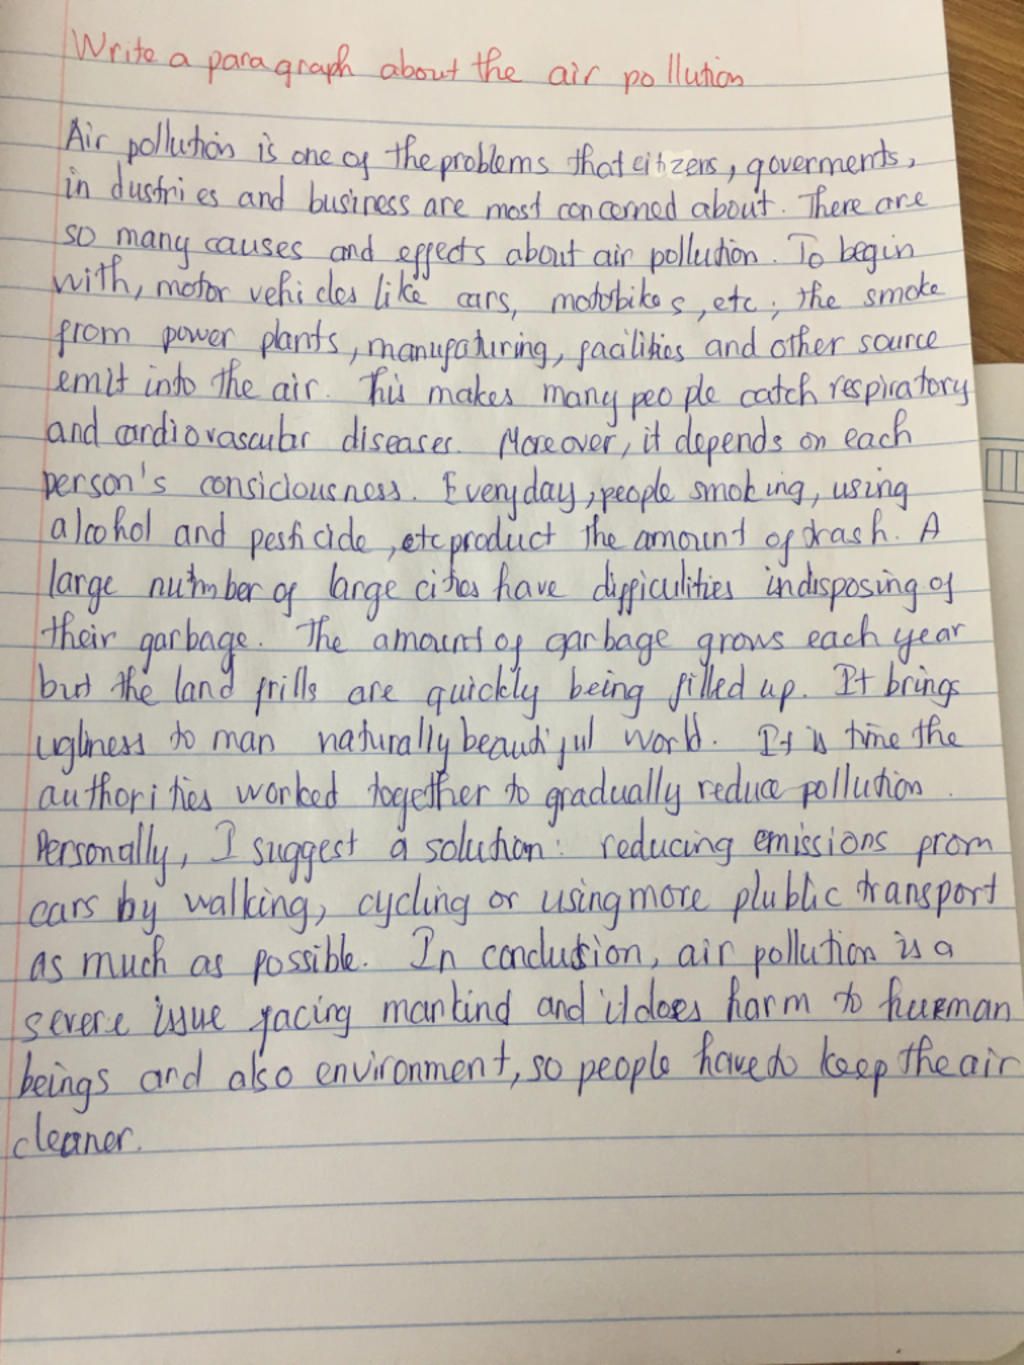 Write a paragraph about the air pollution
Air pollution is one of the problems that citizens, goverments,
industries and business are most concerned about. There are
so many causes and effects about air pollution. To begin
with, motor vehicles like cars, motobikes, etc; the smoke
from power plants, manufaturing, facilities and other source
emit into the air. This makes many people catch respiratory
and cardiovascular diseases. Moreover, it depends on each
person's consiciousness. Everyday, people smoking, using
alcohol and pesticide, etc product the amount of trash. A
large number of large cities have difficulities indisposing of
their garbage. The amount of garbage grows each year
but the land frills are quickly being filled up. It brings
ugliness to man naturally beautiful world. It is time the
authorities worked together to gradually reduce pollution.
Personally, I suggest a solution: reducing emissions from
cars by walking, cycling or using more plublic transport
as much as possible. In conclusion, air pollution is a
severe issue facing mankind and it does harm to human
beings and also environment, so people have to keep the air
cleaner.